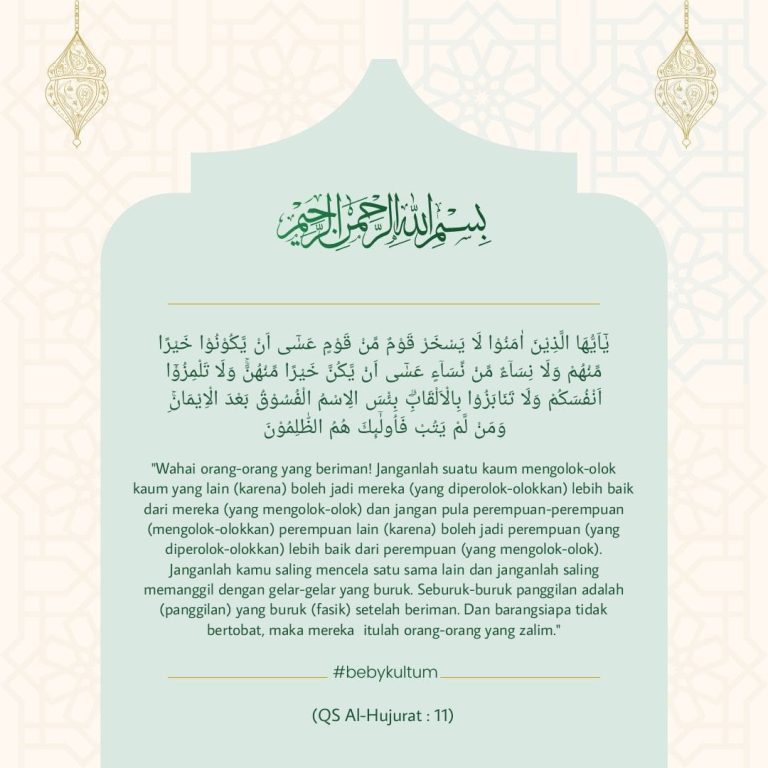 بِسْمِ اللهِ الرَّحْمَنِ الرَّحِيْمِ
يٰٓاَيُّهَا الَّذِيْنَ اٰمَنُوْا لَا يَسْخَرْ قَوْمٌ مِّنْ قَوْمٍ عَسٰٓى اَنْ يَّكُوْنُوْا خَيْرًا
مِّنْهُمْ وَلَا نِسَاۤءٌ مِّنْ نِّسَاۤءٍ عَسٰٓى اَنْ يَّكُنَّ خَيْرًا مِّنْهُنَّۚ وَلَا تَلْمِزُوْٓا
اَنْفُسَكُمْ وَلَا تَنَابَزُوْا بِالْاَلْقَابِۗ بِئْسَ الِاسْمُ الْفُسُوْقُ بَعْدَ الْاِيْمَانِۚ
وَمَنْ لَّمْ يَتُبْ فَاُولٰۤىِٕكَ هُمُ الظّٰلِمُوْنَ
"Wahai orang-orang yang beriman! Janganlah suatu kaum mengolok-olok
kaum yang lain (karena) boleh jadi mereka (yang diperolok-olokkan) lebih baik
dari mereka (yang mengolok-olok) dan jangan pula perempuan-perempuan
(mengolok-olokkan) perempuan lain (karena) boleh jadi perempuan (yang
diperolok-olokkan) lebih baik dari perempuan (yang mengolok-olok).
Janganlah kamu saling mencela satu sama lain dan janganlah saling
memanggil dengan gelar-gelar yang buruk. Seburuk-buruk panggilan adalah
(panggilan) yang buruk (fasik) setelah beriman. Dan barangsiapa tidak
bertobat, maka mereka  itulah orang-orang yang zalim."
#bebykultum
(QS Al-Hujurat : 11)